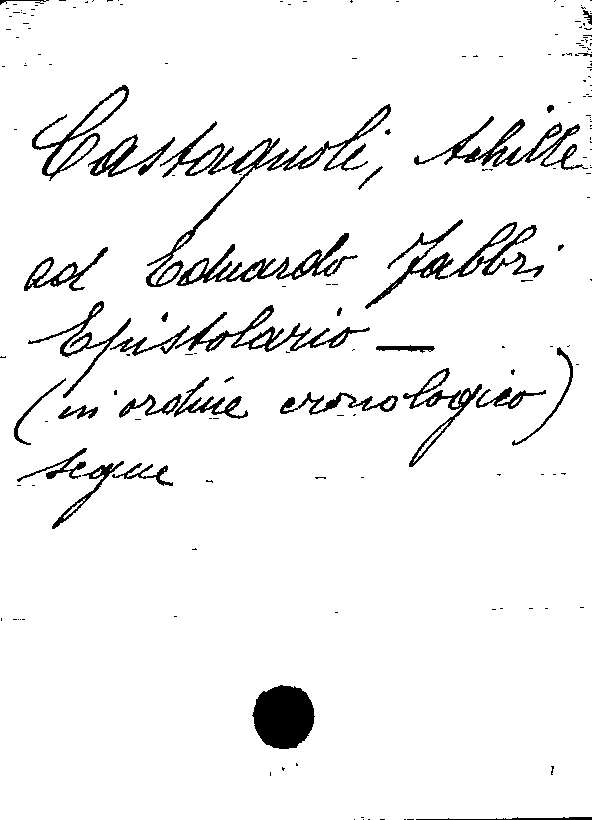 Castagnoli, Achille
ad Eduardo Fabbri
Epistolario —
(in ordine cronologico)
segue